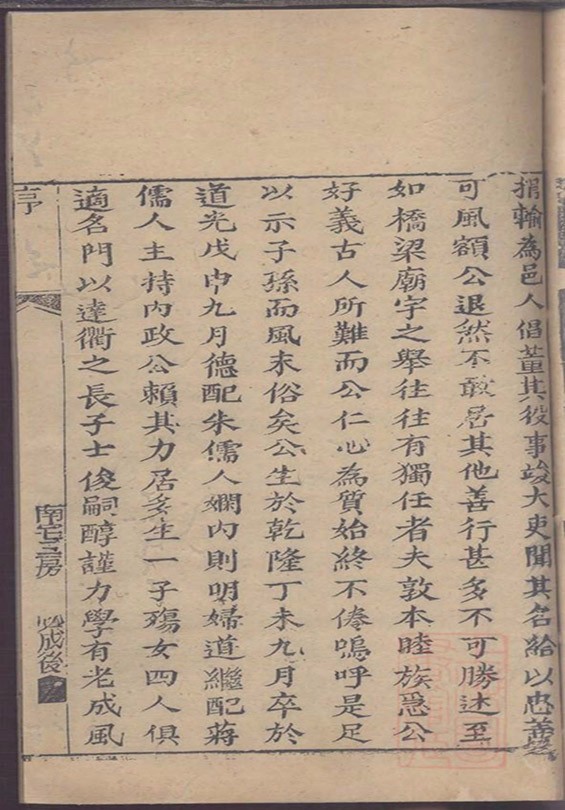 捐輸為邑人倡董其役事竣大吏聞其名給以忠善
可風額公退然不敢居其他善行甚多不可勝述至
如橋梁廟宇之舉往往有獨任者夫敦本睦族急公
好義古人所難而公仁心為質始終不倦嗚呼是足
以示子孫而風末俗矣公生於乾隆丁未九月卒於
道光戊申九月德配朱儒人嫻內則明婦道繼配蔣
儒人主持內政公賴其力居多生一子殤女四人俱
適名門以達衢之長子士俊嗣醇謹力學有老成風
序
南宅二房
成後